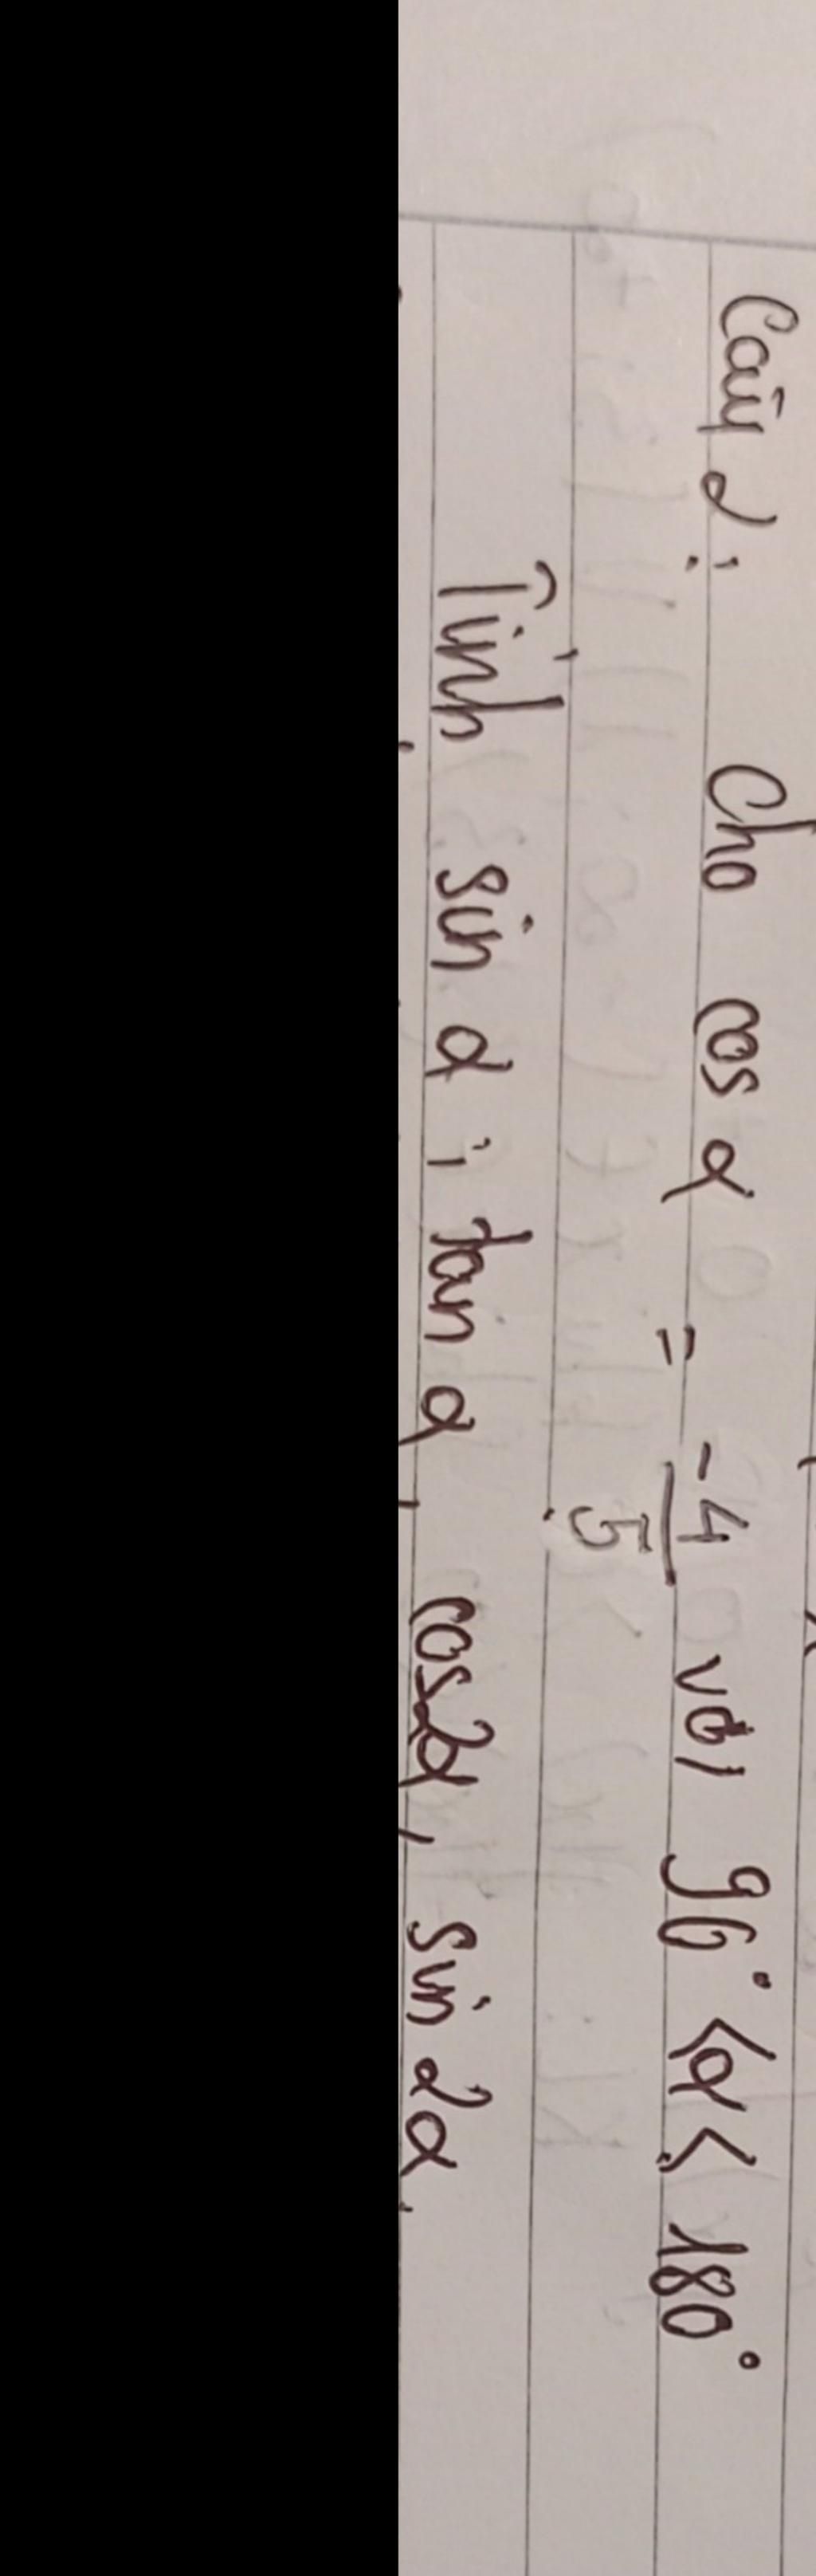 Câu 2: Cho cos α = -4/5 với 90° < α < 180°
Tính sin α; tan α, cos2α, sin 2α.